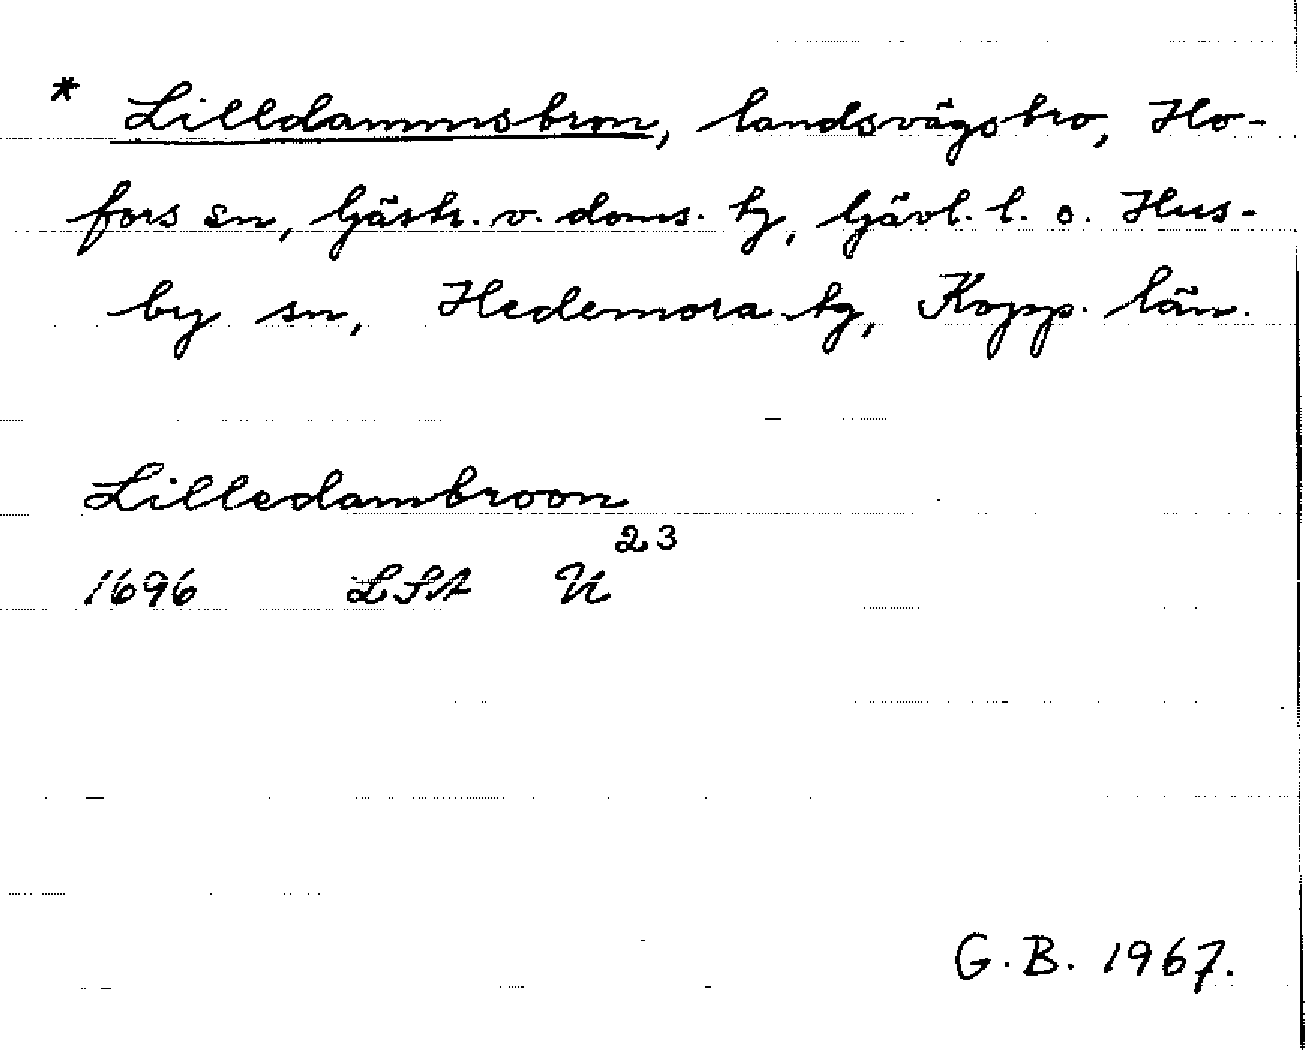 * Lilldammsbron, landsvägsbro, Ho-
fors sn, Gästr. v. doms. tg, Gävl. l. o. Hus-
by sn, Hedemora tg, Kopp. län.
Lilledambroon
1696 LSA U 23
G.B. 1967.